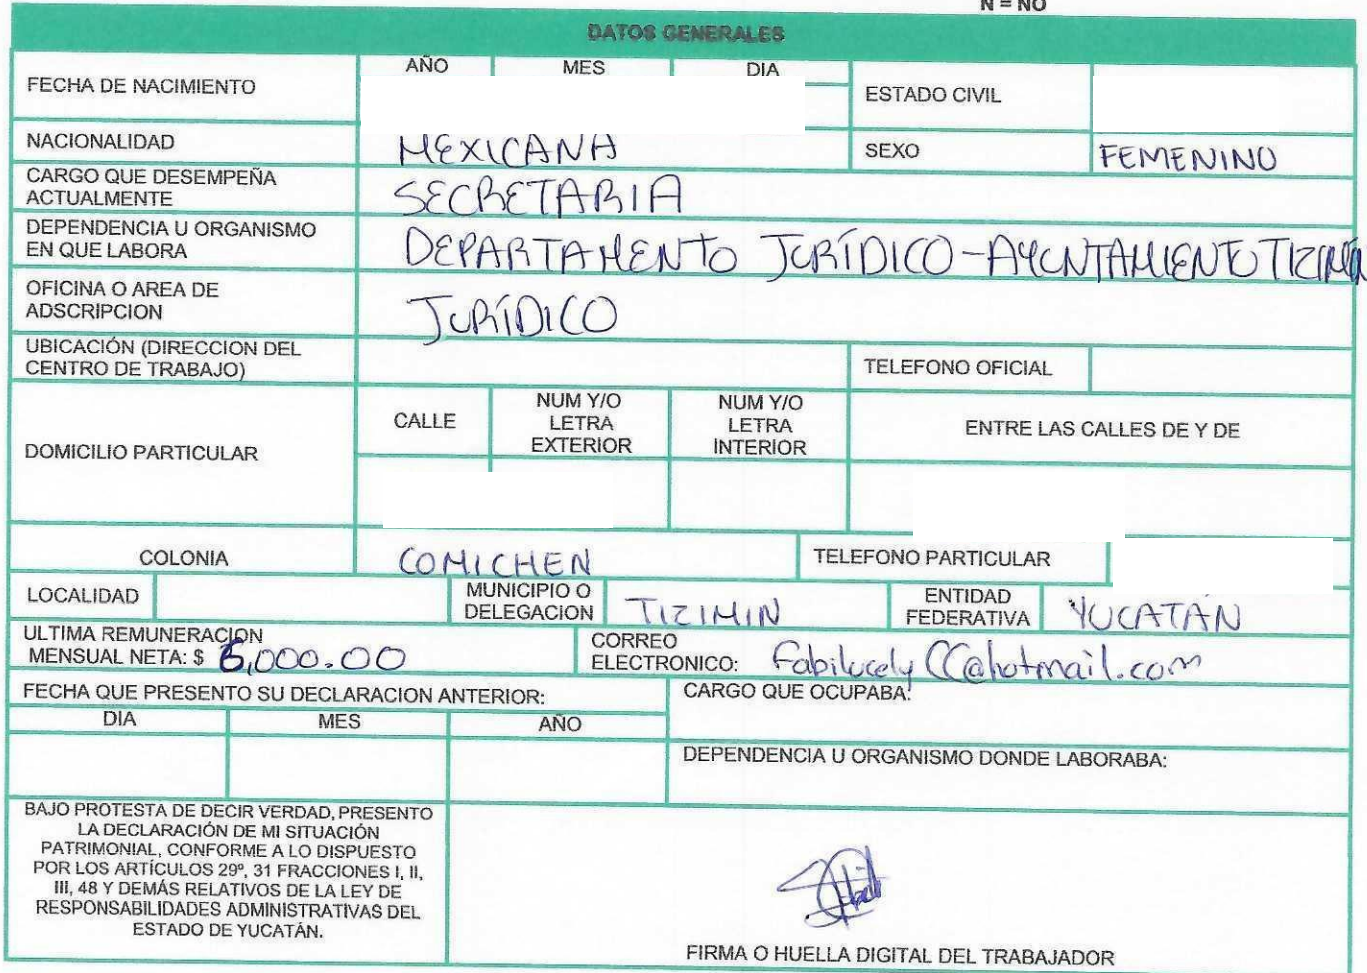 N = NO
DATOS GENERALES
FECHA DE NACIMIENTO
AÑO MES DIA
ESTADO CIVIL
NACIONALIDAD MEXICANA SEXO FEMENINO
CARGO QUE DESEMPEÑA
ACTUALMENTE
SECRETARIA
DEPENDENCIA U ORGANISMO
EN QUE LABORA
DEPARTAMENTO JURÍDICO-AYUNTAMIENTO TIZIMÍN
OFICINA O AREA DE
ADSCRIPCION
JURÍDICO
UBICACIÓN (DIRECCION DEL
CENTRO DE TRABAJO)
TELEFONO OFICIAL
DOMICILIO PARTICULAR
CALLE
NUM Y/O
LETRA
EXTERIOR
NUM Y/O
LETRA
INTERIOR
ENTRE LAS CALLES DE Y DE
COLONIA COMICHEN TELEFONO PARTICULAR
LOCALIDAD
MUNICIPIO O
DELEGACION
TIZIMIN
ENTIDAD
FEDERATIVA
YUCATÁN
ULTIMA REMUNERACION
MENSUAL NETA: $ 6,000.00
CORREO
ELECTRONICO: fabilucelyCC@hotmail.com
FECHA QUE PRESENTO SU DECLARACION ANTERIOR:
DIA MES AÑO
CARGO QUE OCUPABA:
DEPENDENCIA U ORGANISMO DONDE LABORABA:
BAJO PROTESTA DE DECIR VERDAD, PRESENTO
LA DECLARACIÓN DE MI SITUACIÓN
PATRIMONIAL, CONFORME A LO DISPUESTO
POR LOS ARTÍCULOS 29º, 31 FRACCIONES I, II,
III, 48 Y DEMÁS RELATIVOS DE LA LEY DE
RESPONSABILIDADES ADMINISTRATIVAS DEL
ESTADO DE YUCATÁN.
FIRMA O HUELLA DIGITAL DEL TRABAJADOR